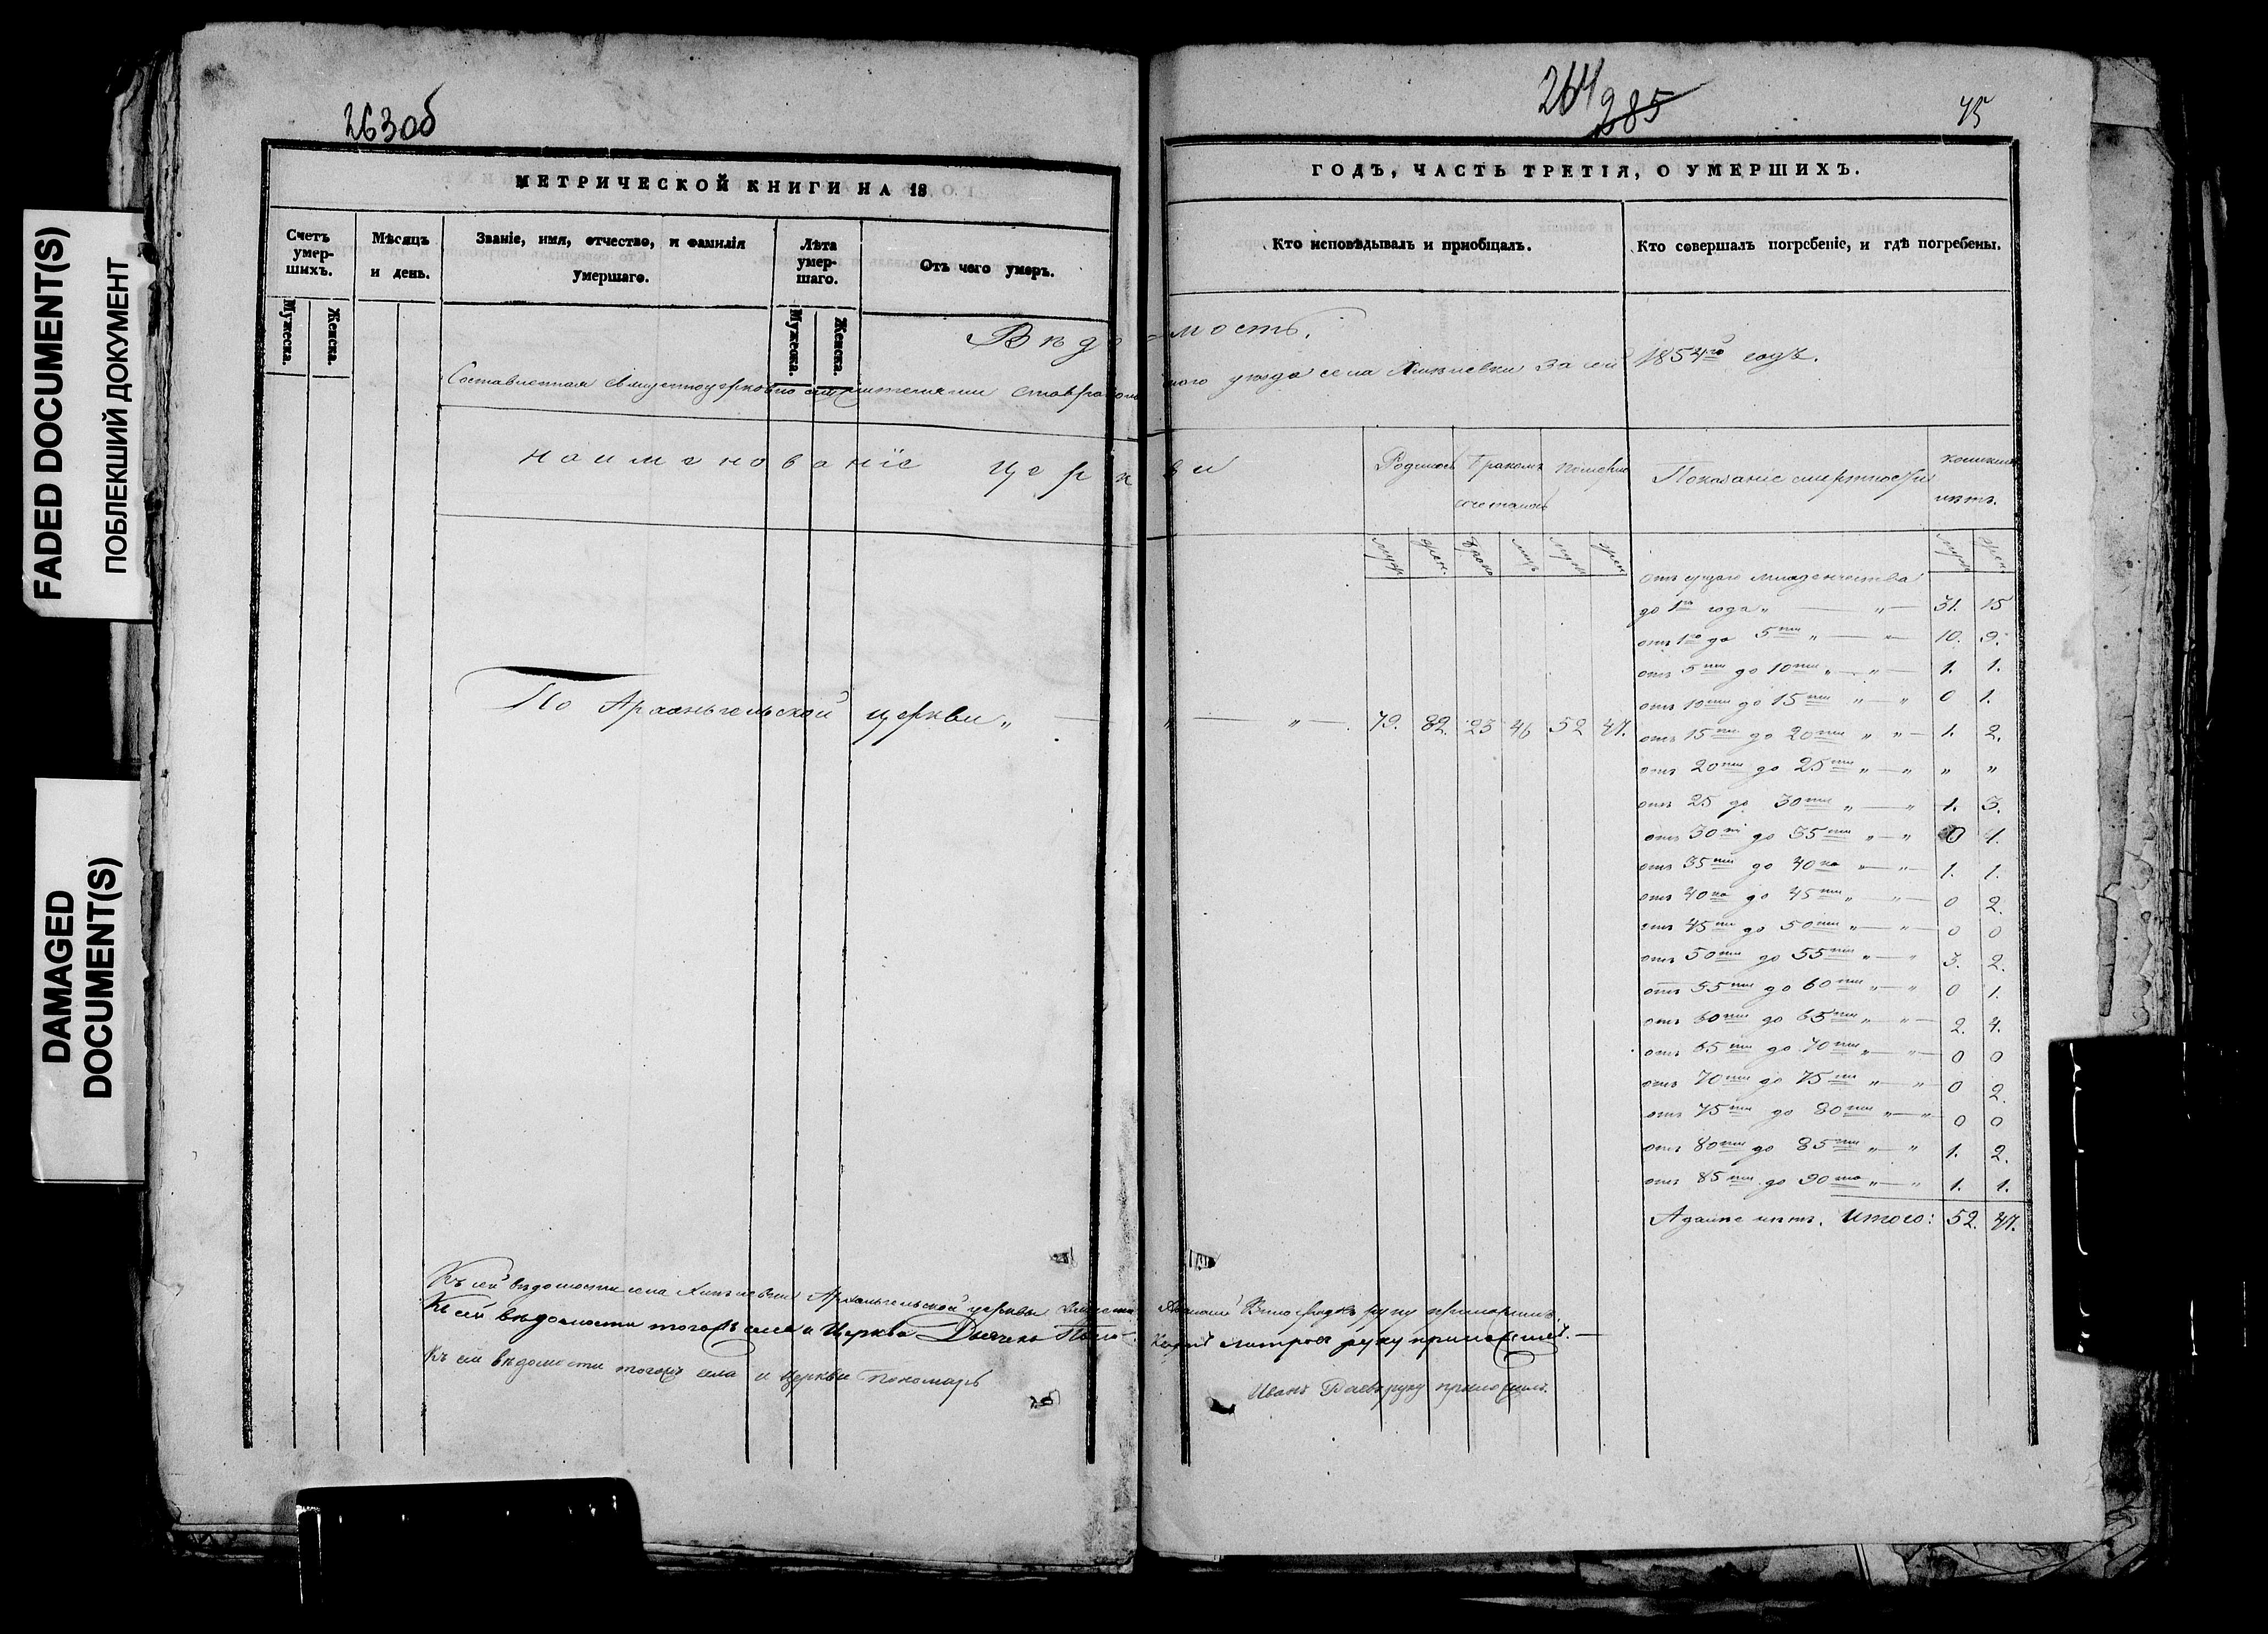 FADED DOCUMENT(S)
ПОБЛЕКШИЙ ДОКУМЕНТ
DAMAGED
DOCUMENT(S)
263об
МЕТРИЧЕСКОЙ КНИГИ НА 18
Счетъ умер-шихъ.
Мѣсяцъ и день.
Званіе, имя, отчество, и фамилія умершаго.
Лѣта умер-шаго.
Отъ чего умеръ.
Мужеска.
Женска.
Мужеска.
Женска.
264
285
ГОДЪ, ЧАСТЬ ТРЕТІЯ, О УМЕРШИХЪ.
Кто исповѣдывалъ и пріобщалъ.
Кто совершалъ погребеніе, и гдѣ погребены.
Вѣдо=мость.
Составленная священноцерковно служителями ставропольского уѣзда села за сей 1854го годъ.
наименованіе церкви
Родилось
Бракомъ сочеталось
Померло
Показаніе смертности
количест. лѣтъ.
муж. жен. брак. лиц. муж. жен. муж. жен.
По Архангельской церкви „ — „ — „ — 79. 82. 23 46 52 47.
отъ сущаго младенчества
до 1го года „ — „ — 31. 15
отъ 1го до 5ти „ — „ — 10. 9.
отъ 5ти до 10ти „ — „ — 1. 1.
отъ 10ти до 15ти „ — „ 0 1.
отъ 15ти до 20ти „ „ — 1. 2.
отъ 20ти до 25ти „ — „ „ „
отъ 25 до 30ти „ — „ 1. 3.
отъ 30ти до 35ти „ — „ 0 1.
отъ 35ти до 40ка „ — „ — 1. 1.
отъ 40ка до 45ти „ — „ — 0 2.
отъ 45ти до 50ти „ — „ — 0 0
отъ 50ти до 55ти „ — „ 3. 2.
отъ 55ти до 60ти „ — „ 0 1.
отъ 60ти до 65ти „ — „ — 2. 4.
отъ 65ти до 70ти „ — „ — 0 0
отъ 70ти до 75ти „ — „ 0 2.
отъ 75ти до 80ти „ — „ 0 0
отъ 80ти до 85ти „ — „ 1. 2.
отъ 85ти до 90то „ — „ 1. 1.
А далѣе нѣтъ. Итого: 52. 47.
Къ сей вѣдомости села Архангельской церкви руку приложилъ.
Къ сей вѣдомости тогожъ села и Церкви руку приложилъ. —
Къ сей вѣдомости тогожъ села и Церкви Пономарь Иванъ руку приложилъ.